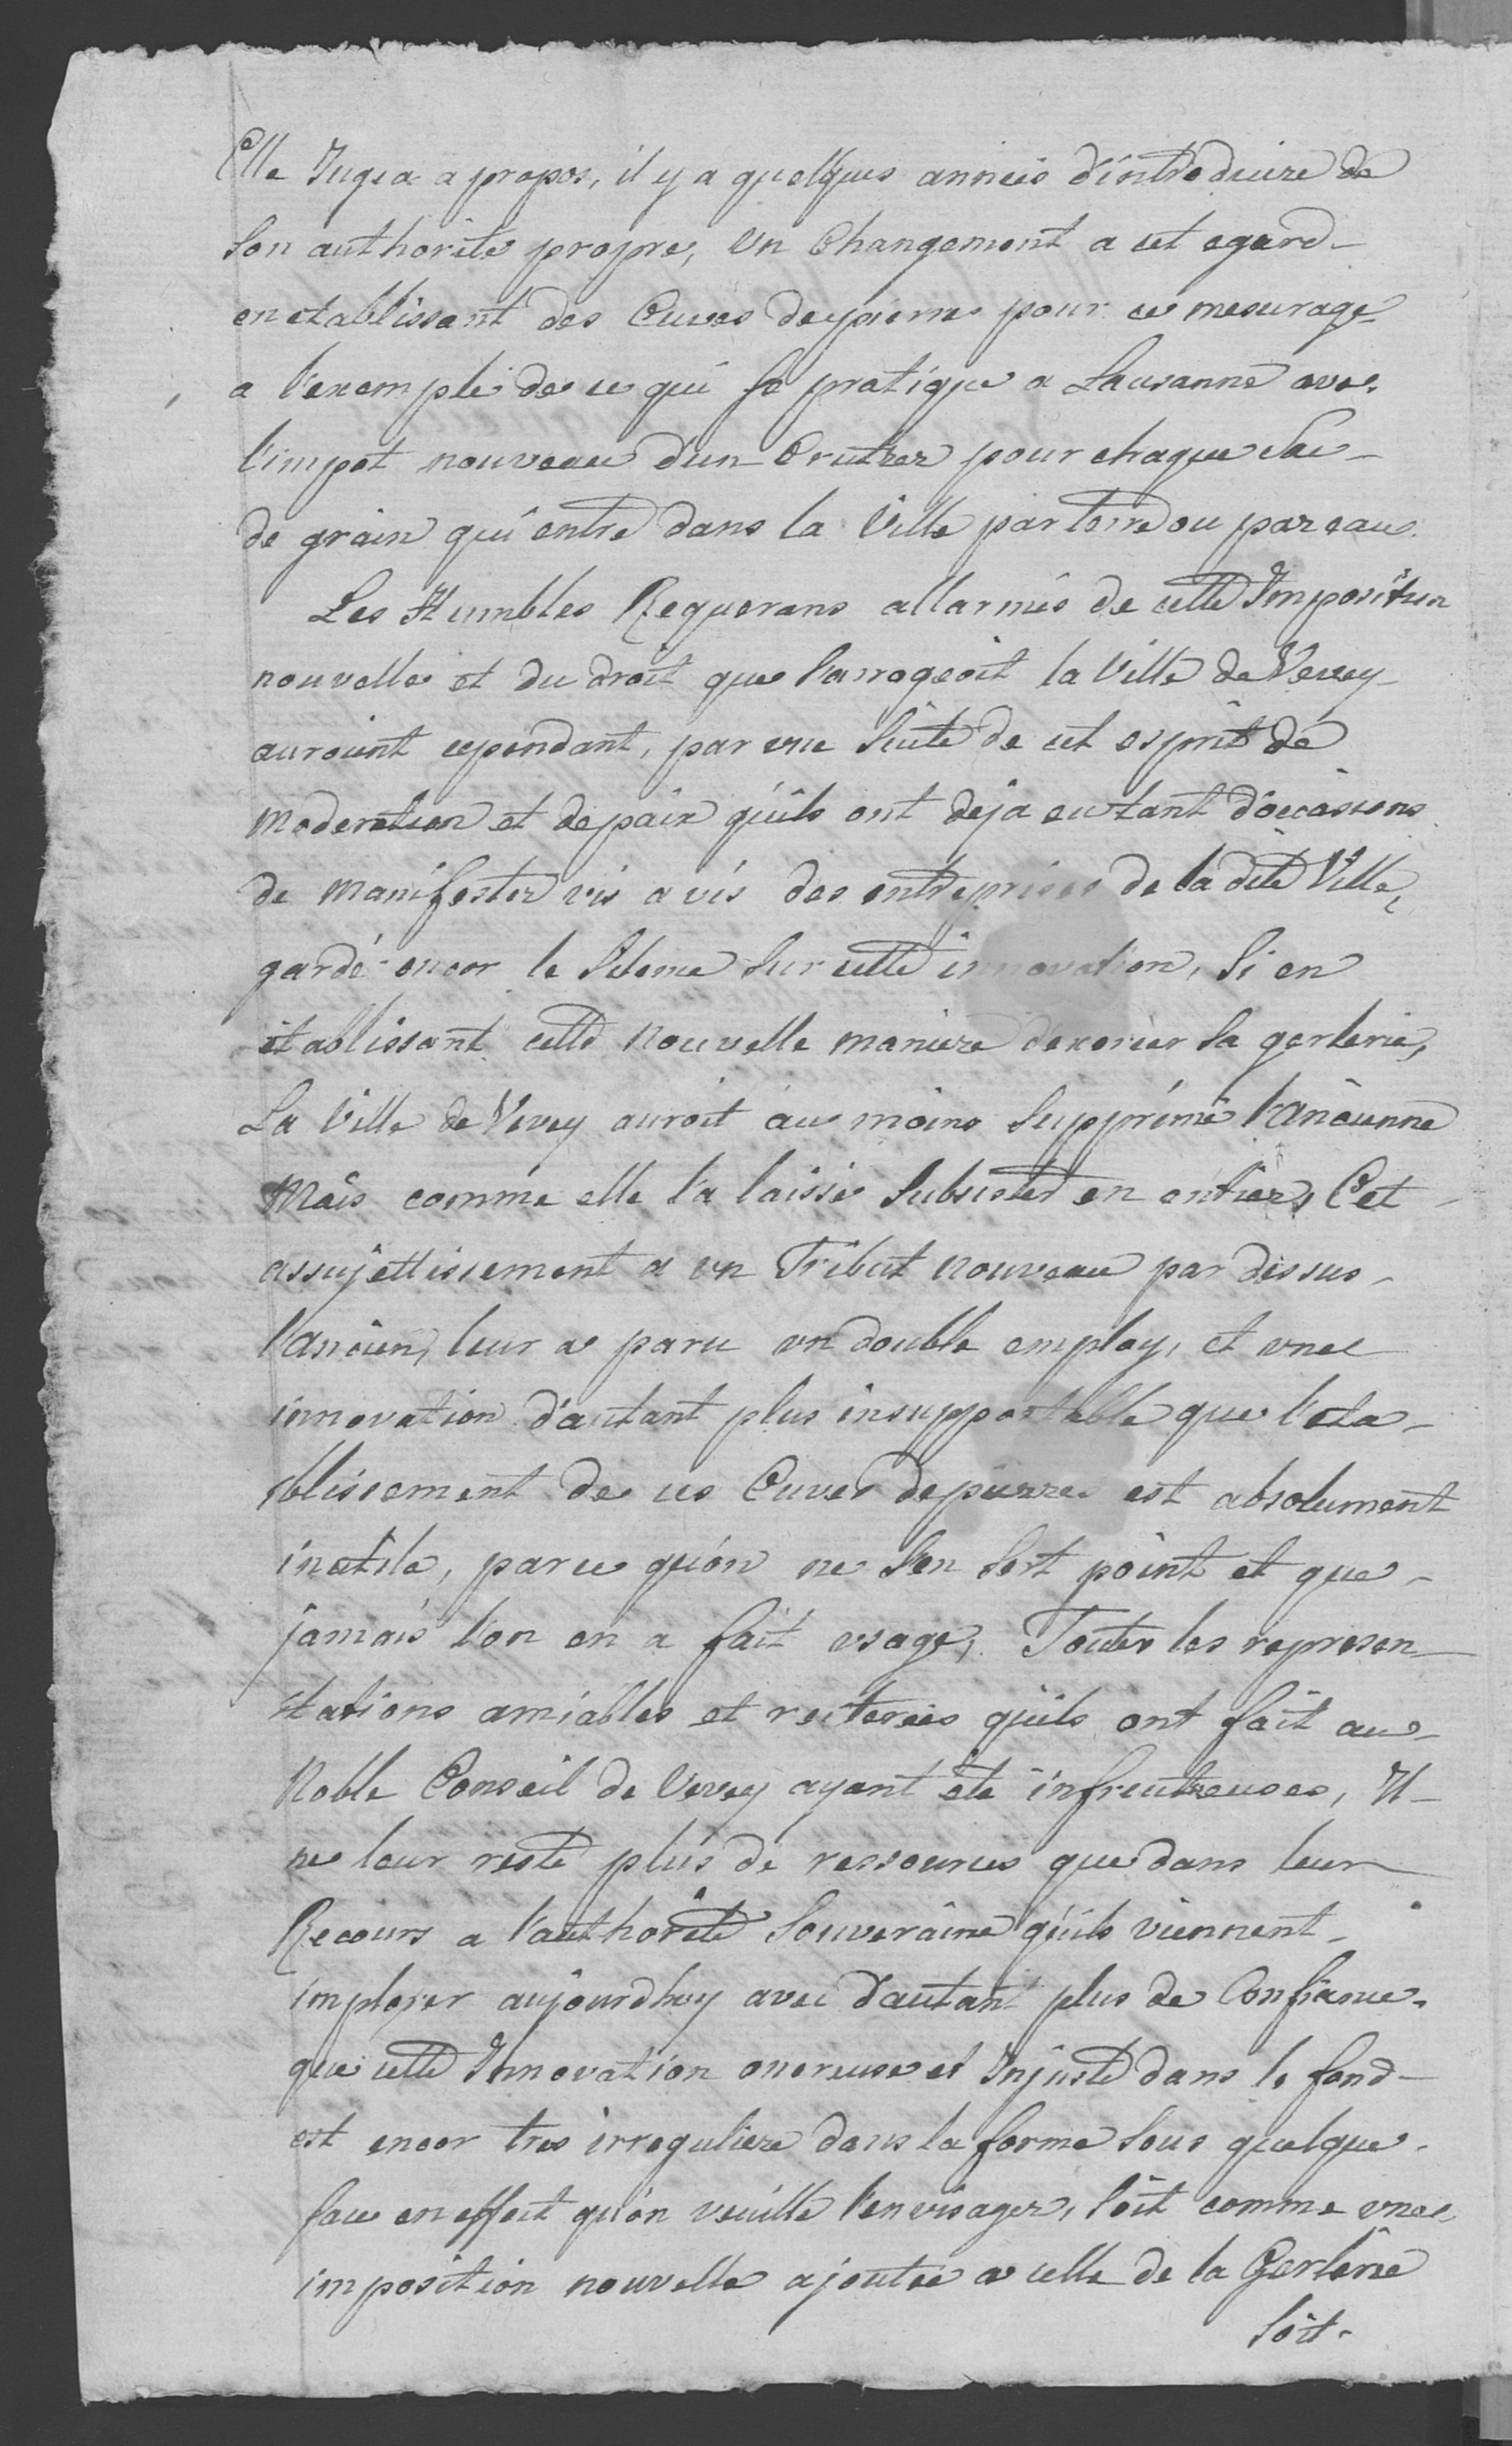 Elle Jugea a propos, il y a quelques annéés d'introduire de
Son authorité propre, Un Changement a cet egard
en etablissant des Cuves de pierre pour ce mesurage
a l'exemple de ce qui se pratique a Lausanne avec
l'impot nouveau d'un Crutzer pour chaque Sac
de grain qui entre dans la Ville par terre ou par eau.
Les Humbles Requerans allarmés de cette Imposition
nouvelle et du droit que S'arrogeoit la Ville de Vevey
auroient cependant, par une Suite de cet esprit de
moderation et de paix qu'ils ont deja eu tant d'occasions
de manifester vis a vis des entreprises de la dite Ville,
gardé encor le Silence Sur cette innovation, Si en
etablissant cette nouvelle maniere d'exercer Sa gerlerie,
La Ville de Vevey auroit au moins Supprimé l'Ancienne
Mais comme elle l'a laissé Subsister en entier, Cet
assujettissement a un Tribut nouveau par dessus
l'Ancien, leur a paru un double employ, et une
innovation d'autant plus insupportable que l'eta-
blissement de ces Cuves de pierre est absolument
inutile, parce qu'on ne S'en Sert point et que
jamais l'on en a fait usage, Toutes les represen-
tations amiables et reiterées qu'ils ont fait au
Noble Conseil de Vevey ayant été infructueuses, Il
ne leur reste plus de ressources que dans leur
Recours a l'authorité Souveraine qu'ils viennent
implorer aujourdhuy avec d'autant plus de Confiance
que cette Innovation onereuse et Injuste dans le fond
est encor tres irreguliere dans la forme Sous quelque
face en effet qu'on veuille l'envisager, Soit comme une
imposition nouvelle ajoutée a celle de la Gerlerie
Soit